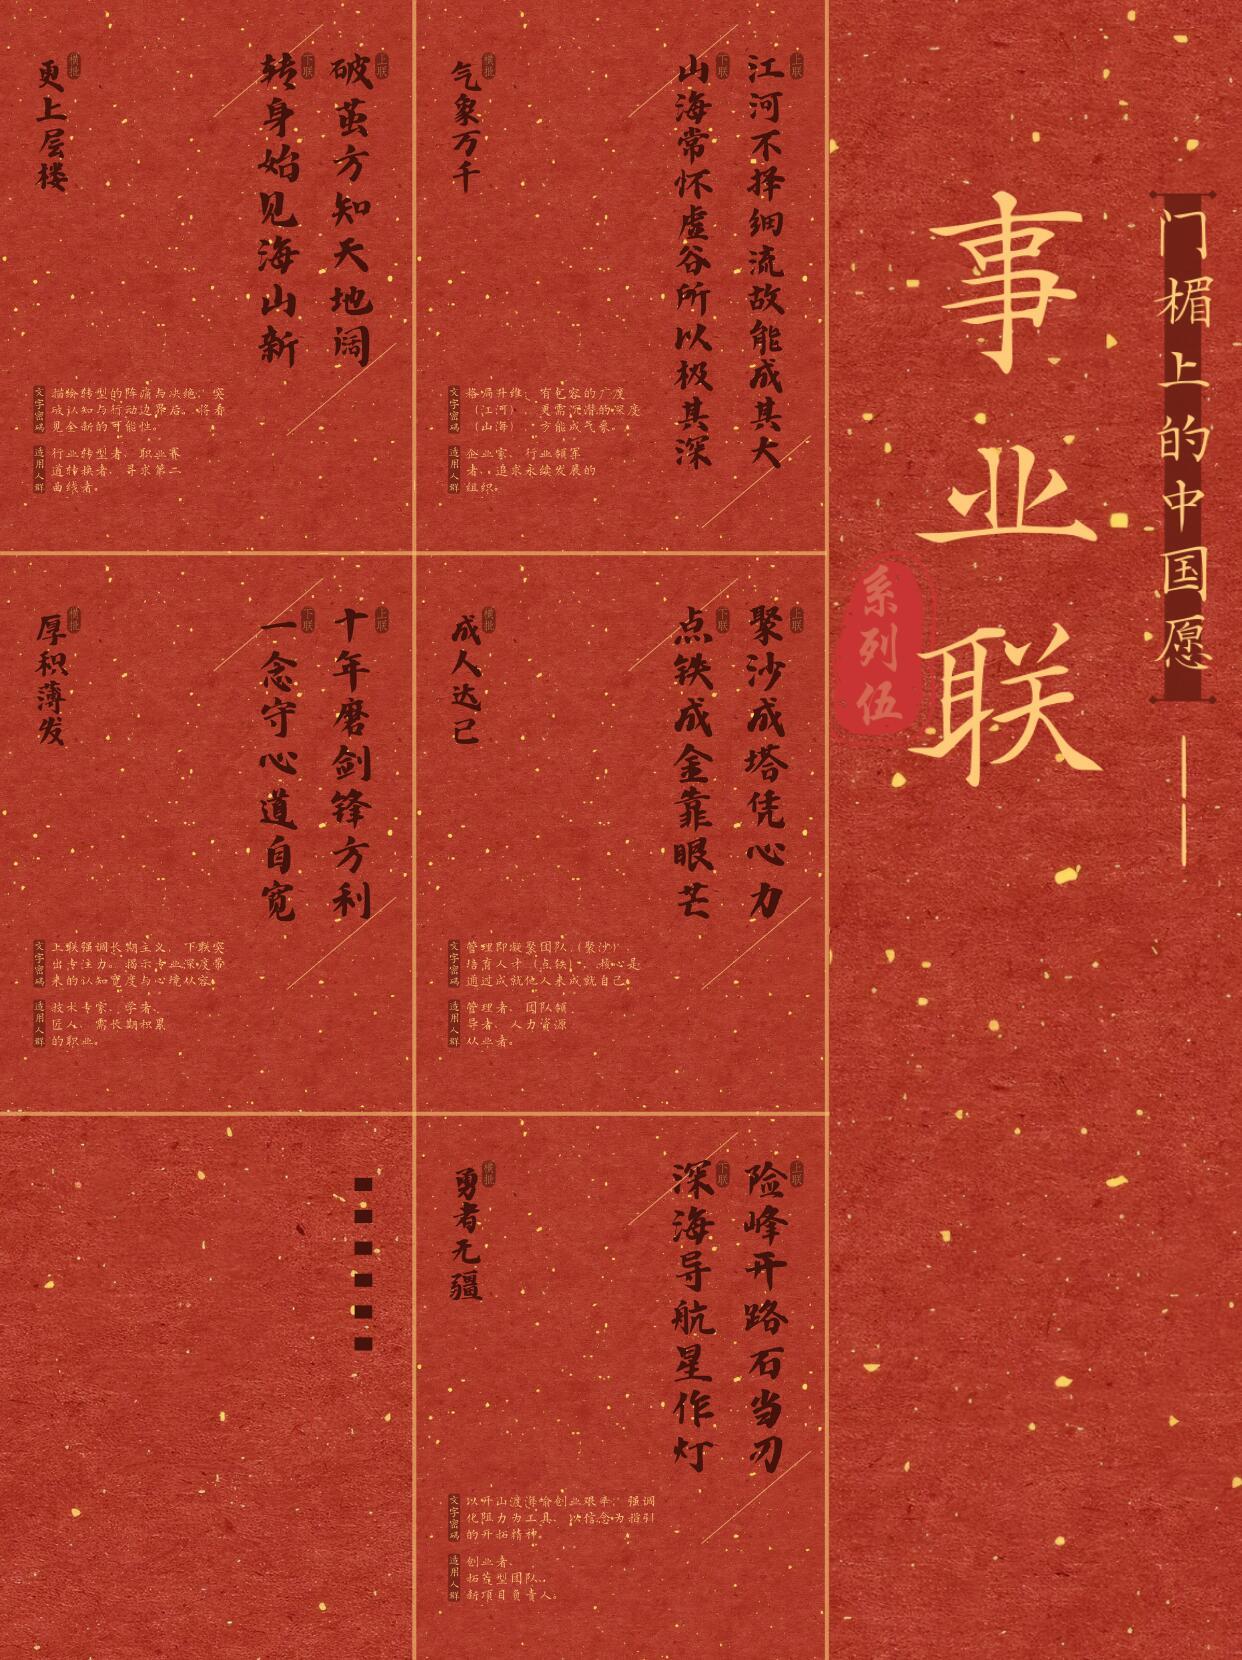 门楣上的中国愿——
事业联
系列伍
上联
江河不择细流故能成其大
下联
山海常怀虚谷所以极其深
横批
气象万千
文字密码
格局升维，有包容的广度
（江河），更需沉潜的深度
（山海），方能成气象。
适用人群
企业家、行业领军
者、追求永续发展的
组织。
上联
破茧方知天地阔
下联
转身始见海山新
横批
更上层楼
文字密码
描绘转型的阵痛与决绝，突
破认知与行动边界后，将看
见全新的可能性。
适用人群
行业转型者、职业赛
道转换者、寻求第二
曲线者。
上联
聚沙成塔凭心力
下联
点铁成金靠眼芒
横批
成人达己
文字密码
管理即凝聚团队（聚沙）、
培育人才（点铁），核心是
通过成就他人来成就自己。
适用人群
管理者、团队领
导者、人力资源
从业者。
上联
十年磨剑锋方利
下联
一念守心道自宽
横批
厚积薄发
文字密码
上联强调长期主义，下联突
出专注力。揭示专业深度带
来的认知宽度与心境从容。
适用人群
技术专家、学者、
匠人、需长期积累
的职业。
上联
险峰开路石当刃
下联
深海导航星作灯
横批
勇者无疆
文字密码
以开山渡海喻创业艰辛，强调
化阻力为工具、以信念为指引
的开拓精神。
适用人群
创业者、
拓荒型团队、
新项目负责人。